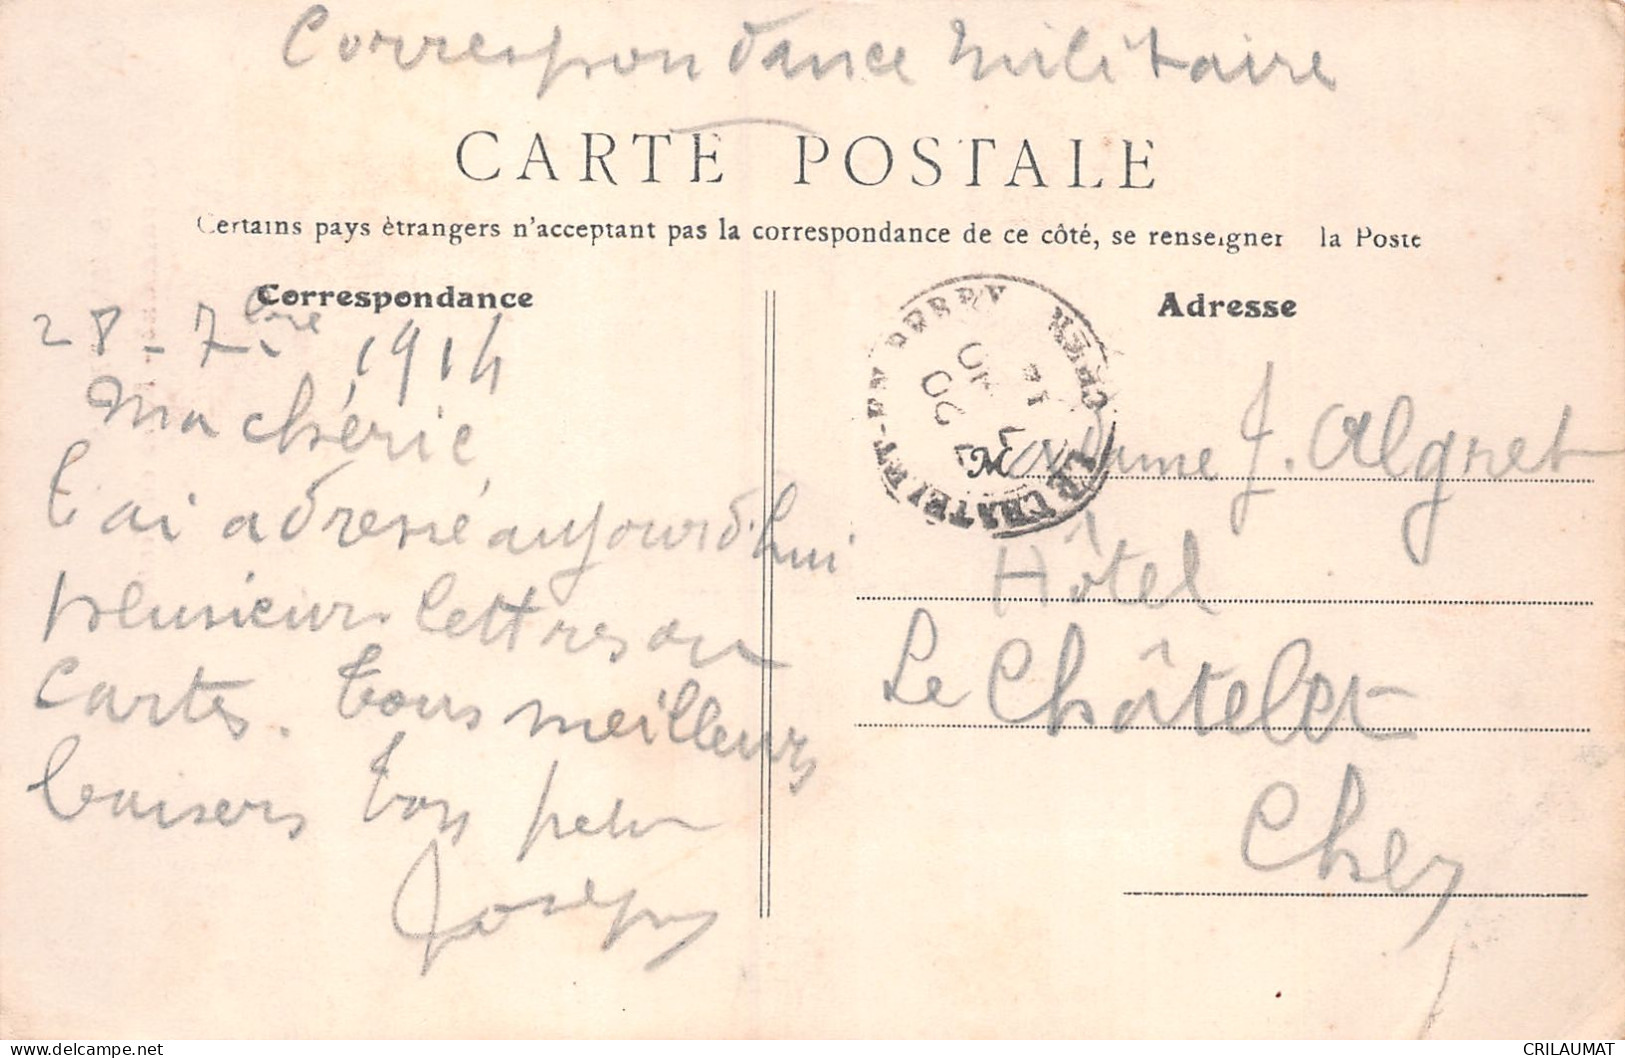 Correspondance Militaire
CARTE POSTALE
Certains pays étrangers n'acceptant pas la correspondance de ce côté, se renseigner la Poste
Correspondance
28-7bre 1914
Ma chérie
t'ai adressé aujourd'hui
plusieurs lettres ou
cartes. Tous meilleurs
baisers ton petit
Joseph
Adresse
Madame J. Algret
Hôtel
Le Châtelet
Cher
LE CHATELET-EN-BERRY
CHER
CRILAUMAT